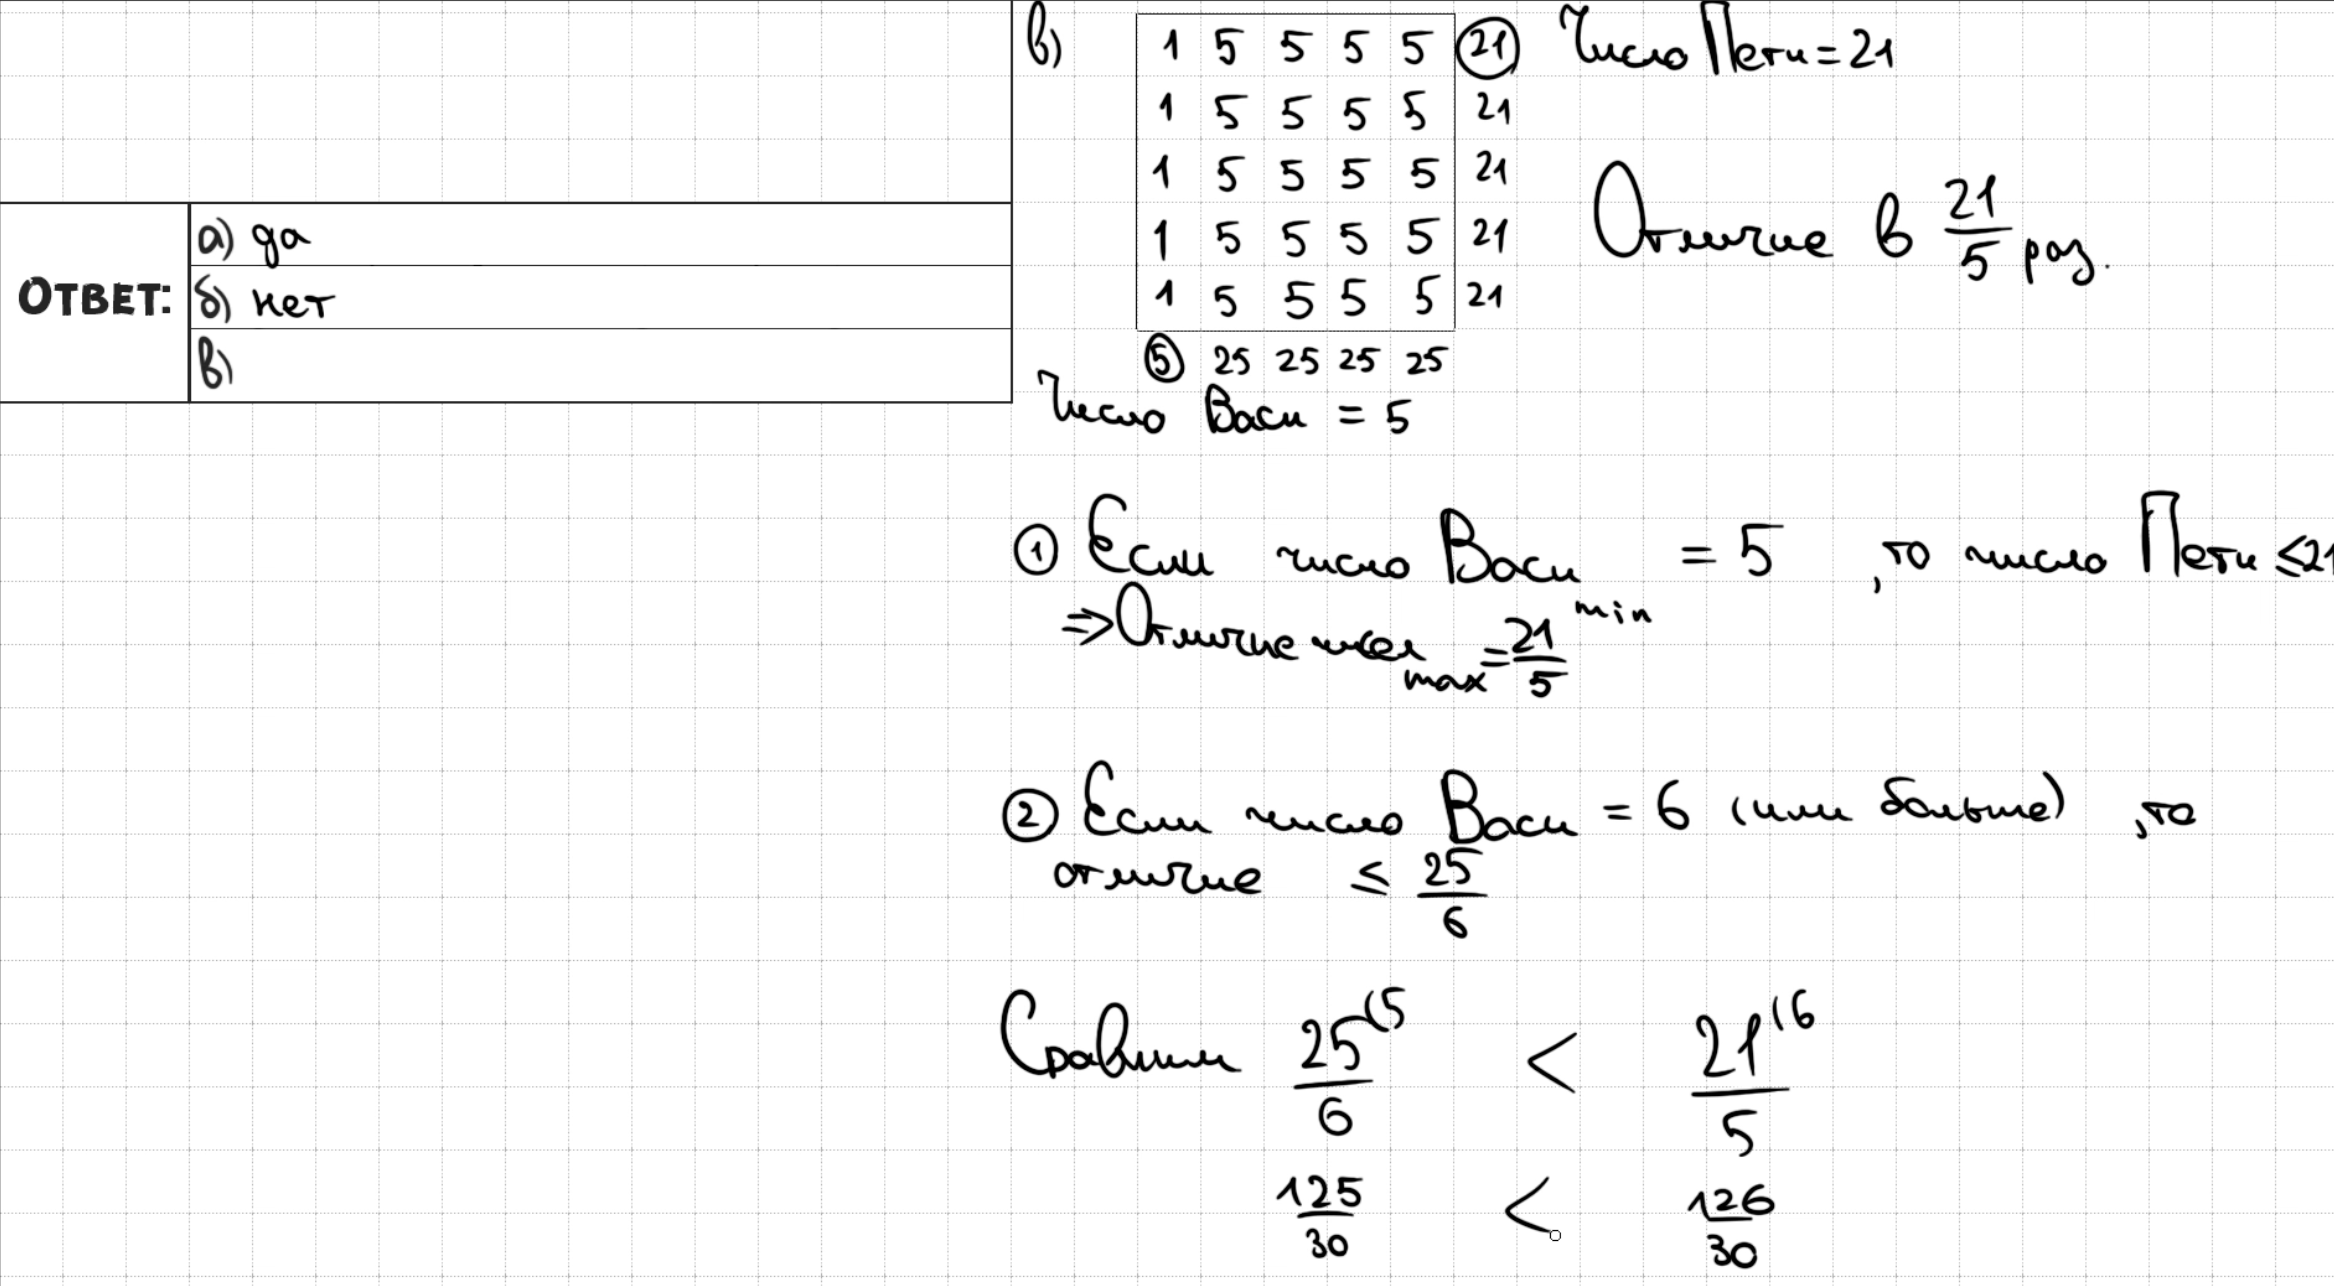 ОТВЕТ:
а) да
б) нет
в)
в)
1 5 5 5 5 21 Число Пети = 21
1 5 5 5 5 21
1 5 5 5 5 21
1 5 5 5 5 21
1 5 5 5 5 21
5 25 25 25 25
Отличие в 21/5 раз.
Число Васи = 5
1 Если число Васи = 5, то число Пети ≤ 21
min
⇒ Отличие чисел max = 21/5
2 Если число Васи = 6 (или больше), то
отличие ≤ 25/6
Сравним 25(5/6 < 21(6/5
125/30 < 126/30